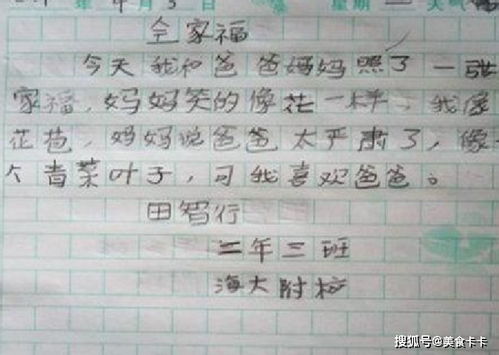 年 月 日 星期 天气
全家福
今天我和爸爸妈妈照了一张
家福,妈妈笑的像花一样,我像
花苞,妈妈说爸爸太严肃了,像
个青菜叶子,可我喜欢爸爸。
田智行
二年三班
海大附校
搜狐号@美食卡卡